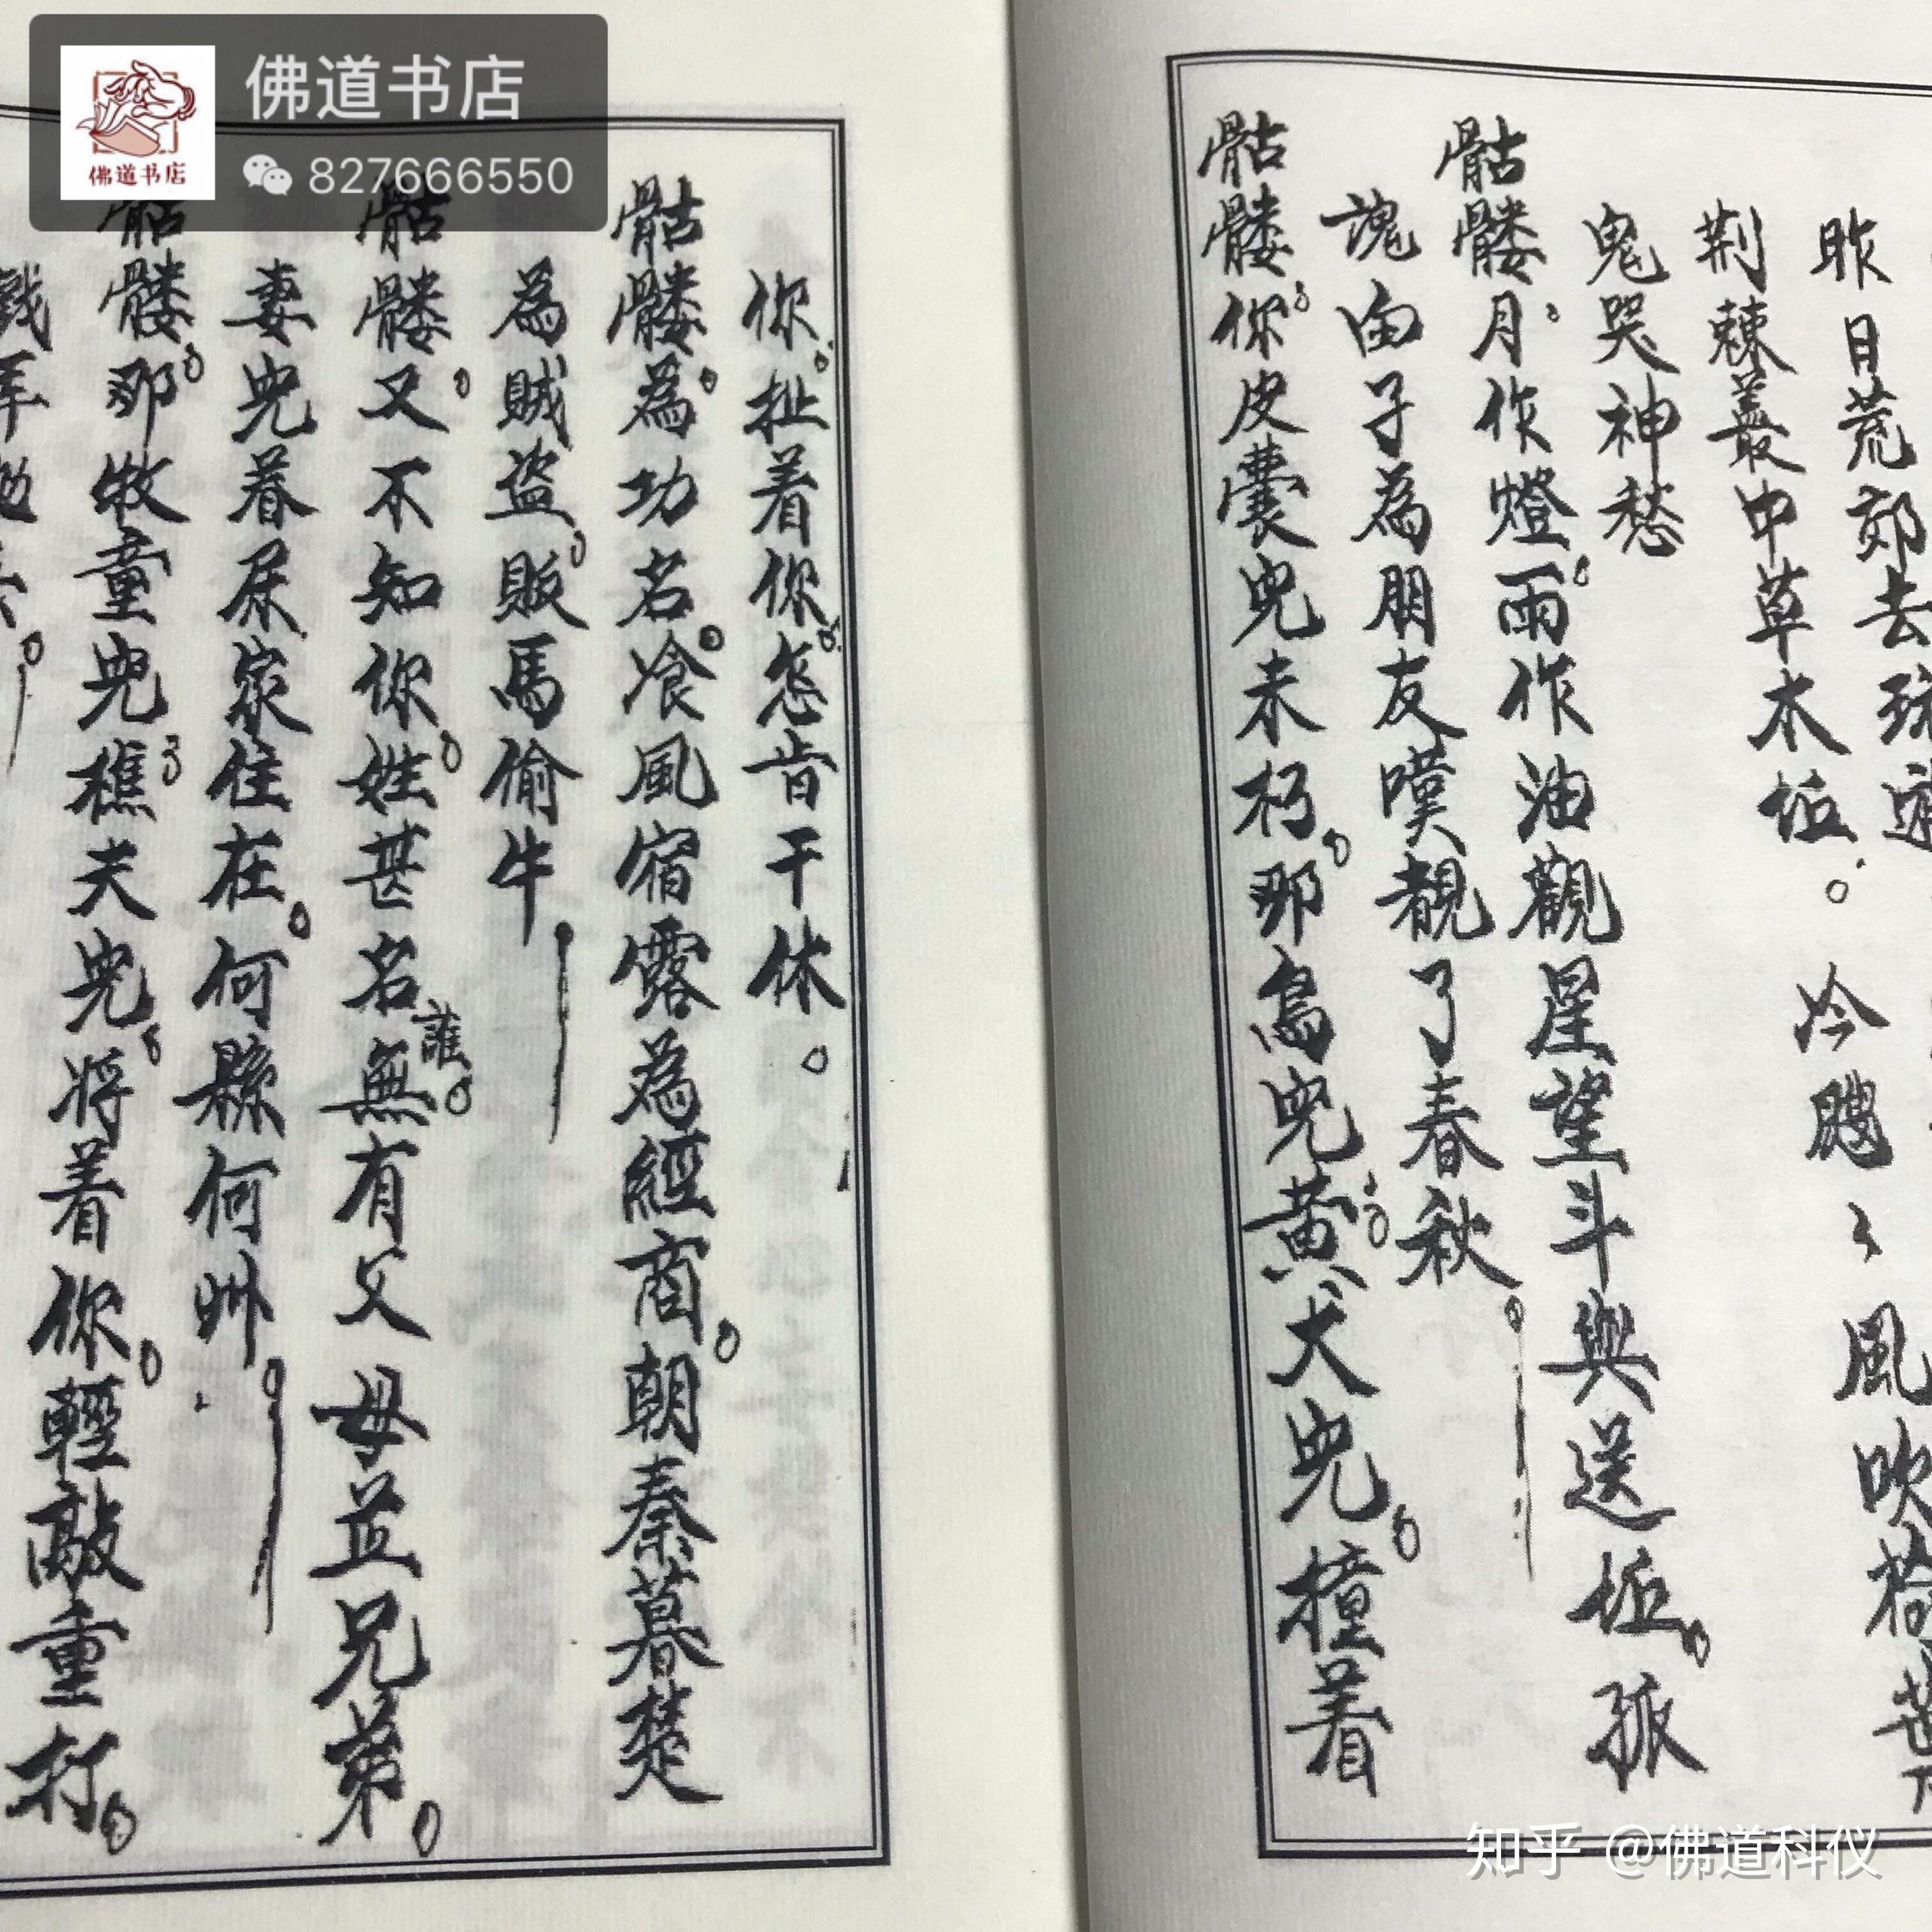 佛道书店
827666550
佛道书店
昨日荒郊去
荆棘叢中草木坵。冷颼〻風吹
鬼哭神愁
骷髏月作燈雨作油觀星望斗與送坵孤
魂由子為朋友嘆覩了春秋
骷髏你皮囊兜未朽那鳥兜黄犬兜撞着
你扯着你怎肯干休。
骷髏為功名飡風宿露為經商朝秦暮楚
為賊盗販馬偷牛
骷髏又不知你姓甚名誰無有父母並兄弟
妻兜着屎家住在何縣何州
骷髏那牧童兜樵夫兜将着你輕敲重打
知乎 @佛道科仪